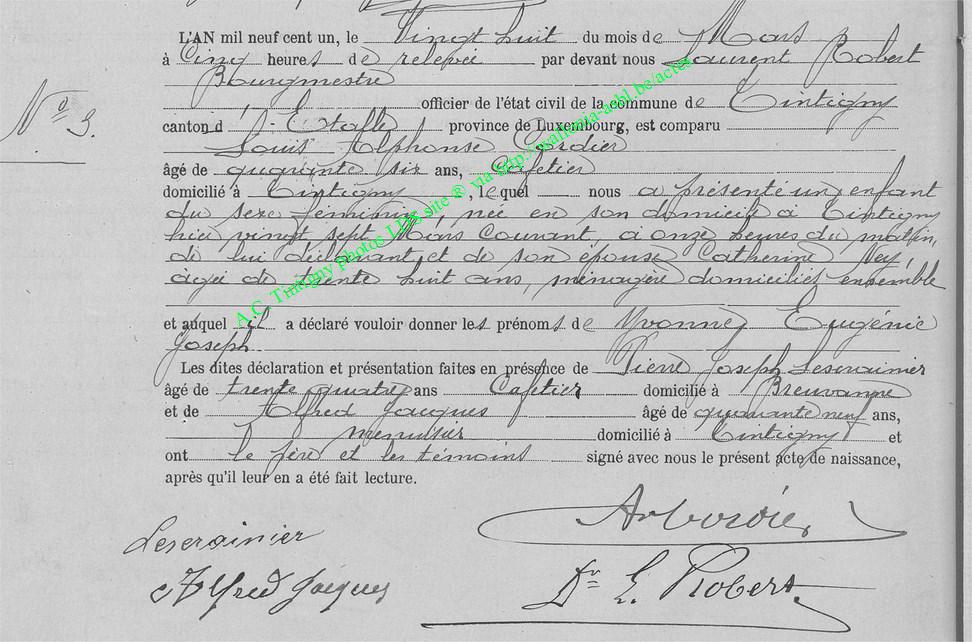 L'AN mil neuf cent un, le Vingt huit du mois de Mars
à Cinq heures de relevée par devant nous Laurent Robert
Bourgmestre
officier de l'état civil de la commune de Tintigny
canton d'Etalle province de Luxembourg, est comparu
Louis Alphonse Cordier
âgé de quarante six ans, Cafetier
domicilié à Tintigny, lequel nous a présenté un enfant
du sexe féminin, née en son domicile à Tintigny
hier vingt sept Mars courant, à onze heures du matin,
de lui déclarant et de son épouse Catherine Ney
âgée de trente huit ans, ménagère domiciliés ensemble
et auquel il a déclaré vouloir donner les prénoms de Yvonne Eugénie
Joseph
Les dites déclaration et présentation faites en présence de Pierre Joseph Leserainier
âgé de trente quatre ans Cafetier domicilié à Breuvanne
et de Alfred Jacques âgé de quarante neuf ans,
menuisier domicilié à Tintigny et
ont le père et les témoins signé avec nous le présent acte de naissance,
après qu'il leur en a été fait lecture.
N° 3.
Leserainier
Alfred Jacques
Dr L. Robert
A.C. Tintigny photos LDS site ® via http://wallonia-asbl.be/actes